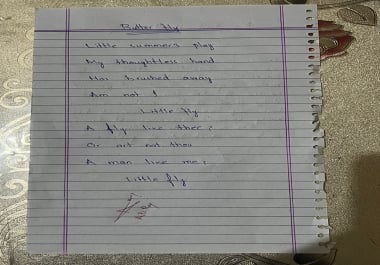 Butter fly
Little summers play
My thoughtless hand
Has brushed away
Am not I
Little fly
A fly like thee ;
Or art not thou
A man like me ;
Little fly